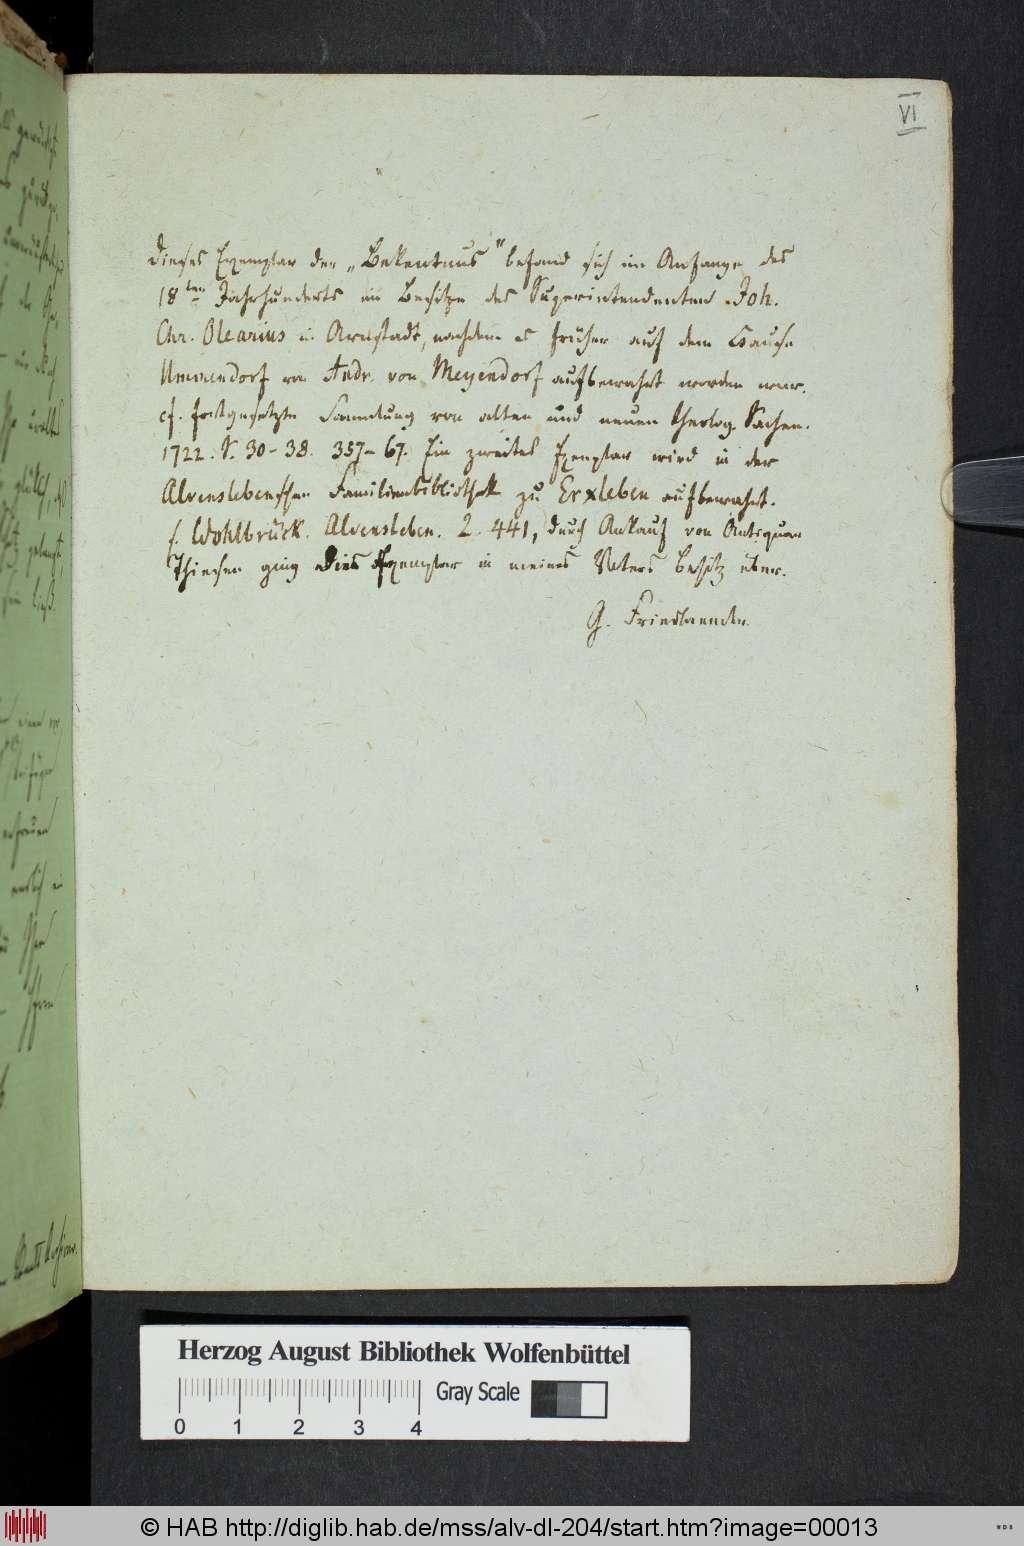 VI
Dieses Exemplar der „Bekentnus" befand sich im Anfange des
18ten Jahrhunderts im Besitze des Superintendenten Joh.
Chr. Olearius in Arnstadt, nachdem es früher auf dem Hause
Ummendorf von Andr. von Meyendorf aufbewahrt worden war.
cf. fortgesetzte Sammlung von alten und neuen theolog. Sachen.
1722. S. 30-38. 357-67. Ein zweites Exemplar wird in der
Alvenslebenschen Familienbibliothek zu Erxleben aufbewahrt.
s. Wohlbrück. Alvensleben. 2. 441, durch Ankauf von Antiquar
ging dies Exemplar in meines Vaters Besitz über.
G. Friedlaender.
Herzog August Bibliothek Wolfenbüttel
Gray Scale
0 1 2 3 4
© HAB http://diglib.hab.de/mss/alv-dl-204/start.htm?image=00013